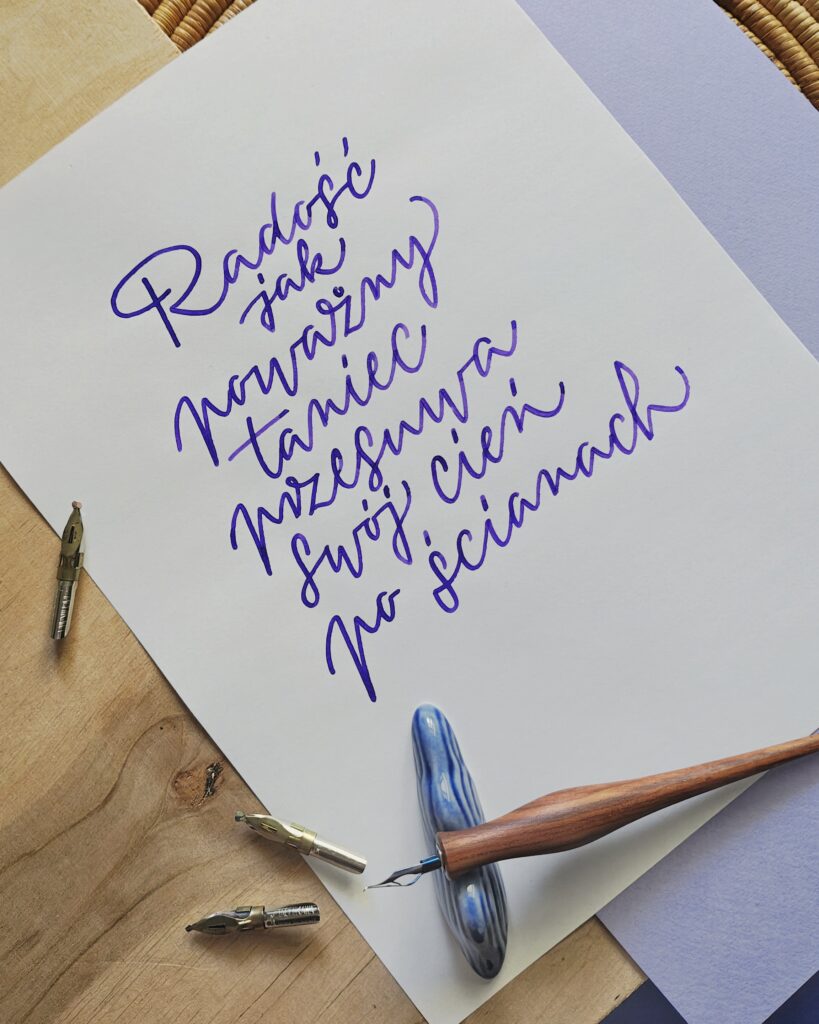 Radość
jak
poważny
taniec
przesuwa
swój cień
po ścianach